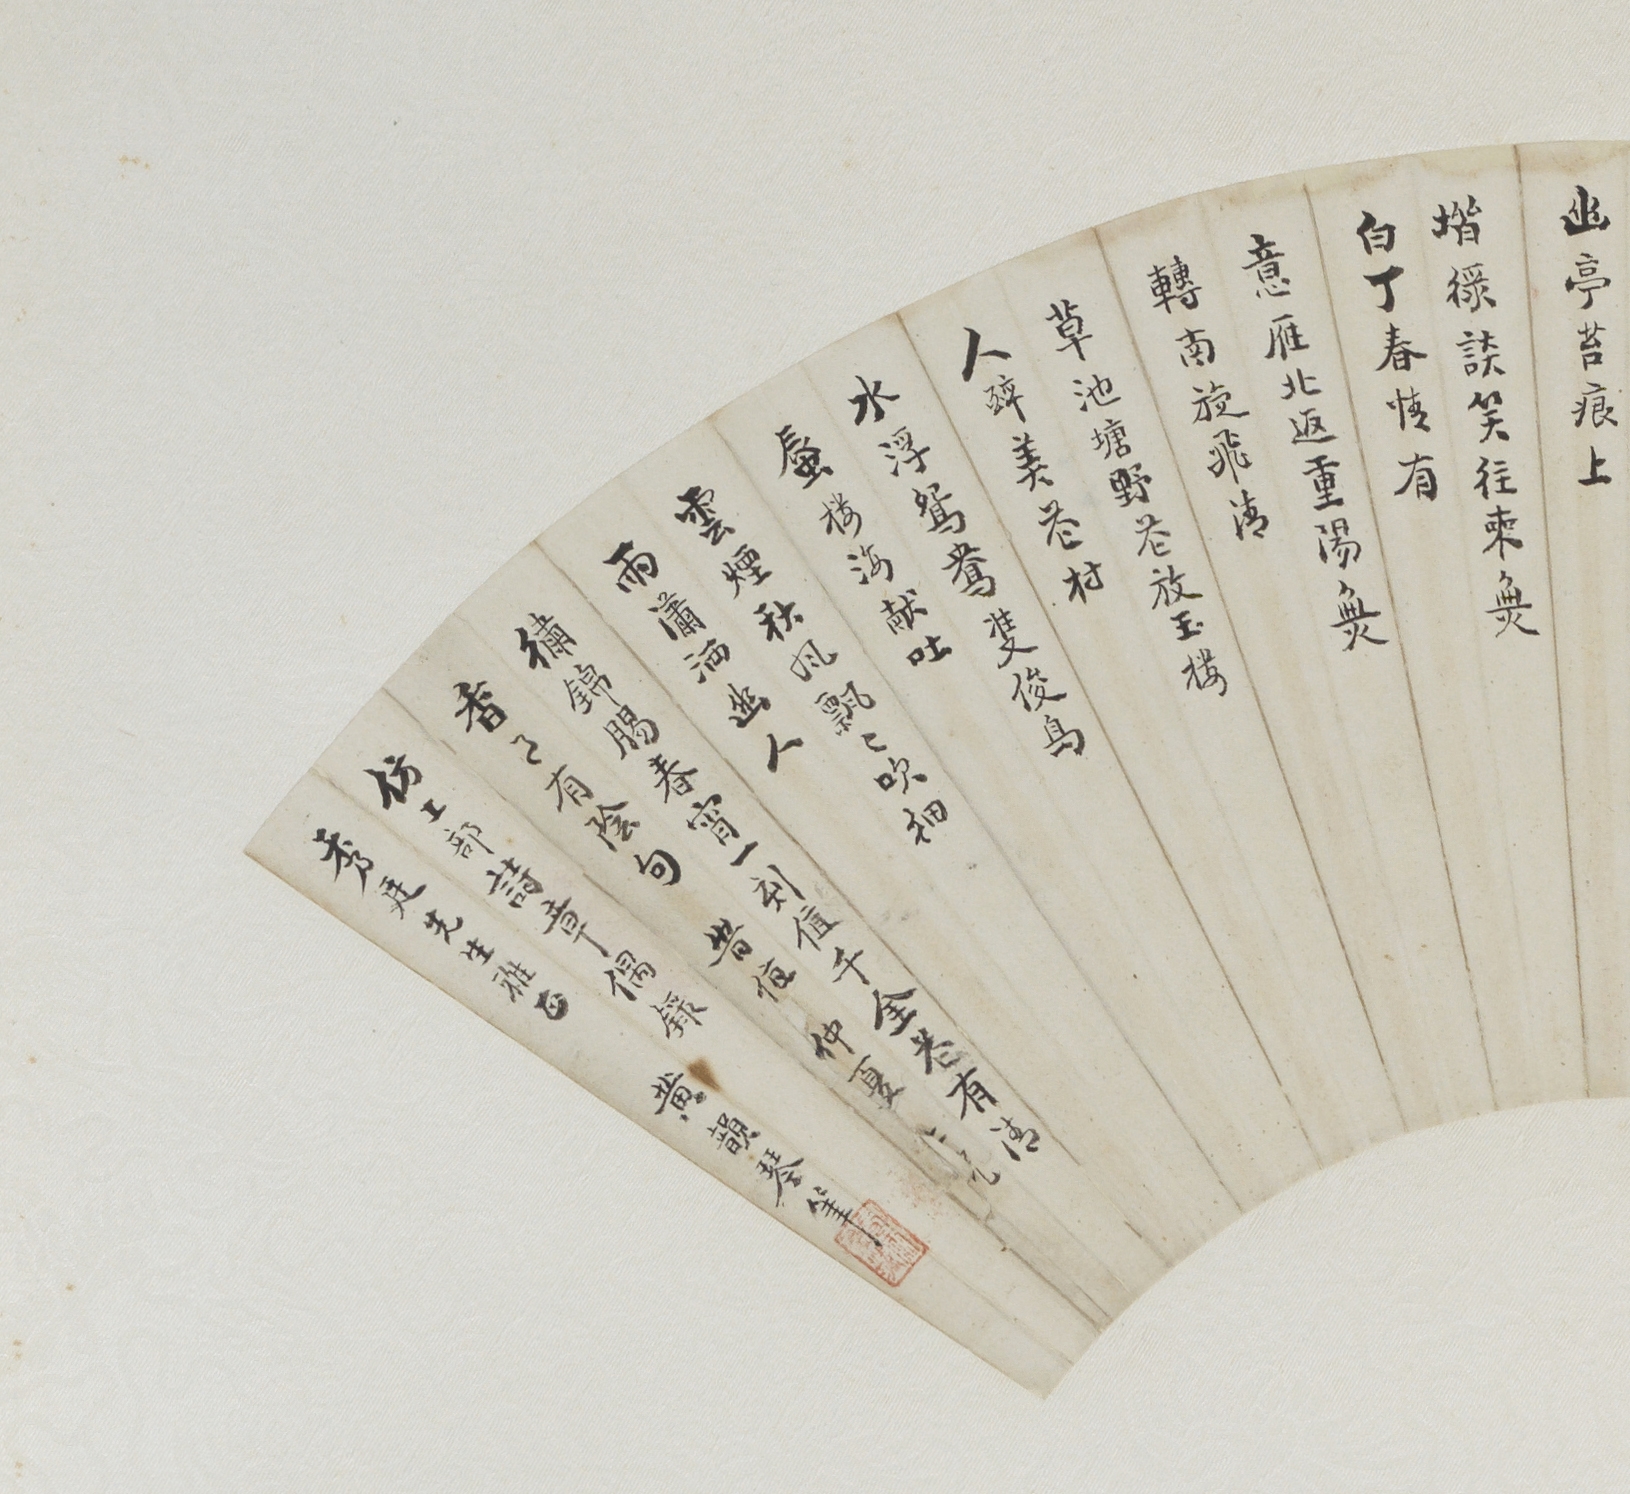 幽亭苔痕上
堦綠談笑往來無
白丁春情有
意雁北返重陽無
轉南旋飛清
草池塘野花放玉楼
人醉美花村
水浮鴛鴦雙俊鳥
蜃楼海献吐
雲煙秋风飄〻吹細
雨瀟洒幽人
繡錦腸春宵一刻值千金花有清
香月有陰句 昔值 仲夏
仿工部詩章偶錄 黄韻琴筆
秀廷先生雅正